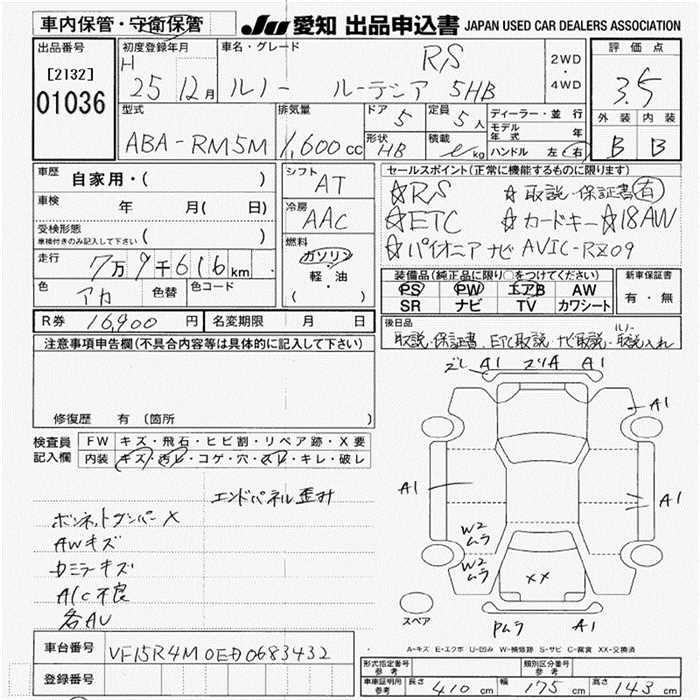 車内保管・守衛保管 JU 愛知 出品申込書 JAPAN USED CAR DEALERS ASSOCIATION
出品番号 [2132] 01036
初度登録年月 H 25 12月
車名・グレード RS ルノー ルーテシア 5HB
2WD ・ 4WD
評価点 3.5
外装 内装
B B
型式 ABA-RM5M
排気量 1,600cc
ドア 5 定員 5人
形状 HB 積載 kg
ディーラー・並行
モデル年式 年
ハンドル 左・右
車歴 自家用・( )
車検 年 月( 日)
受検形態 車検付きのみ記入して下さい ( )
走行 7万9千616km
色 アカ 色替 色コード
シフト AT
冷房 AAC
燃料 ガソリン 軽・油 ( )
セールスポイント(正常に機能するものに限ります)
☆RS ☆取説・保証書有
☆ETC ☆カードキー ☆18AW
☆パイオニアナビ AVIC-RZ09
装備品(純正品に限り○をつけてください)
PS PW エアB AW
SR ナビ TV カワシート
新車保証書 有・無
R券 16,900円 名変期限 月 日
後日品
取説・保証書、ETC取説、ナビ取説・ルノー取説入れ
注意事項申告欄(不具合内容等は具体的に記入して下さい)
修復歴 有 (箇所 )
検査員記入欄
FW キズ・飛石・ヒビ割・リペア跡・X要
内装 キズ・汚レ・コゲ・穴・スレ・キレ・破レ
エンドパネル歪み
ボンネットダンパーX
AWキズ
カミラーキズ
A/C不良
各AU
A1 A1
A1
A1 A1
W2 ムラ
W2 ムラ
XX
Pムラ A1
スペア
A-キズ E-エクボ U-凹み W-補修跡 S-サビ C-腐食 XX-交換済
車台番号 VF15R4M0ED0683432
登録番号
形式指定番号 参考 類別区分番号 参考
車庫証明用 参考 長さ 410cm 幅 175cm 高さ 143cm